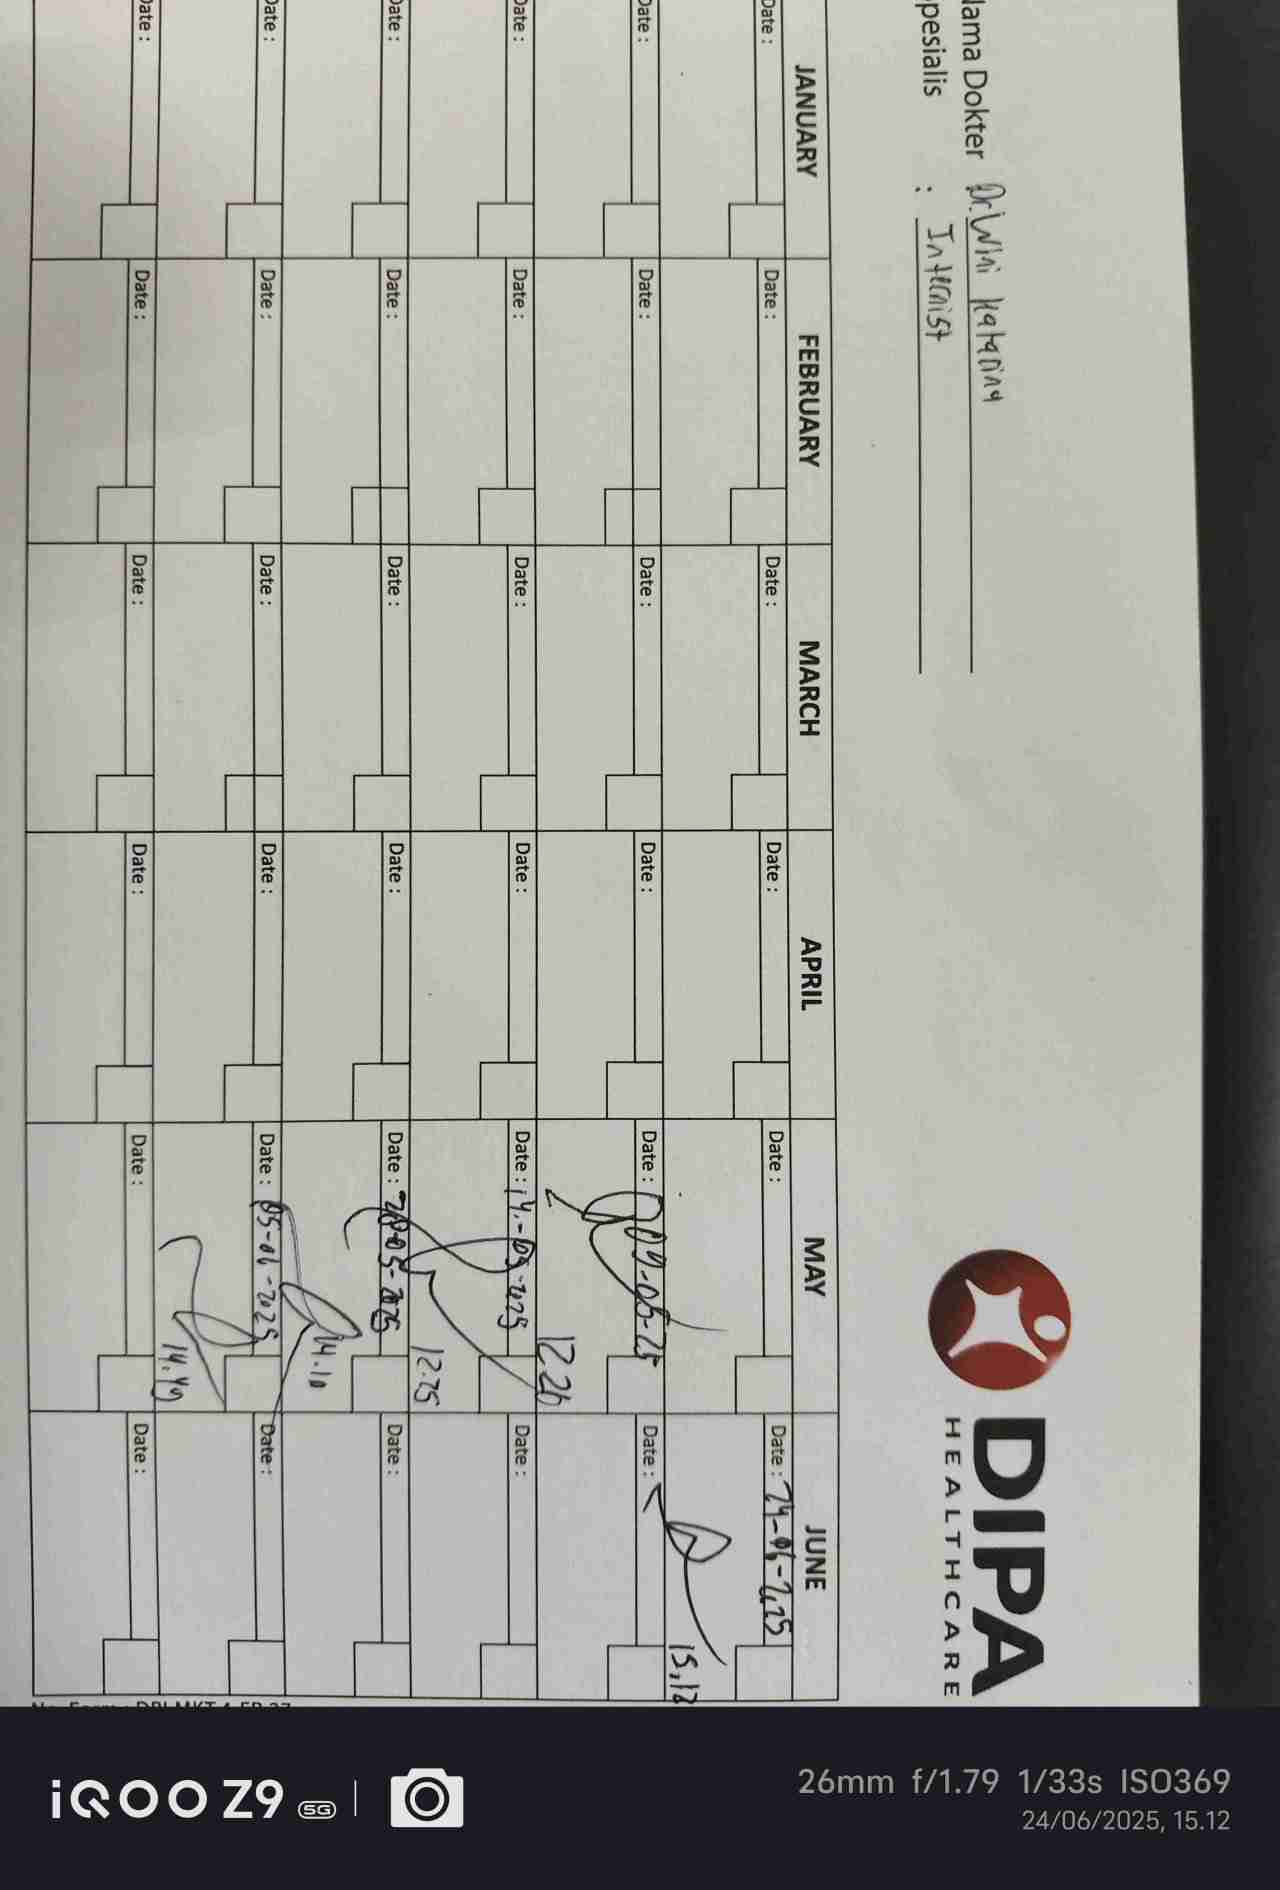 DIPA
HEALTHCARE
Nama Dokter Dr. Wini Katarina
Spesialis : Internist
JANUARY FEBRUARY MARCH APRIL MAY JUNE
Date : Date : Date : Date : Date : Date : 24-06-2025
15.12
Date : Date : Date : Date : Date : 09-05-25 Date :
12.26
Date : Date : Date : Date : Date : 14-05-2025 Date :
12.25
Date : Date : Date : Date : Date : 28-05-2025 Date :
14.10
Date : Date : Date : Date : Date : 05-06-2025 Date :
14.49
Date : Date : Date : Date : Date : Date :
iQOO Z9 5G
26mm f/1.79 1/33s ISO369
24/06/2025, 15.12